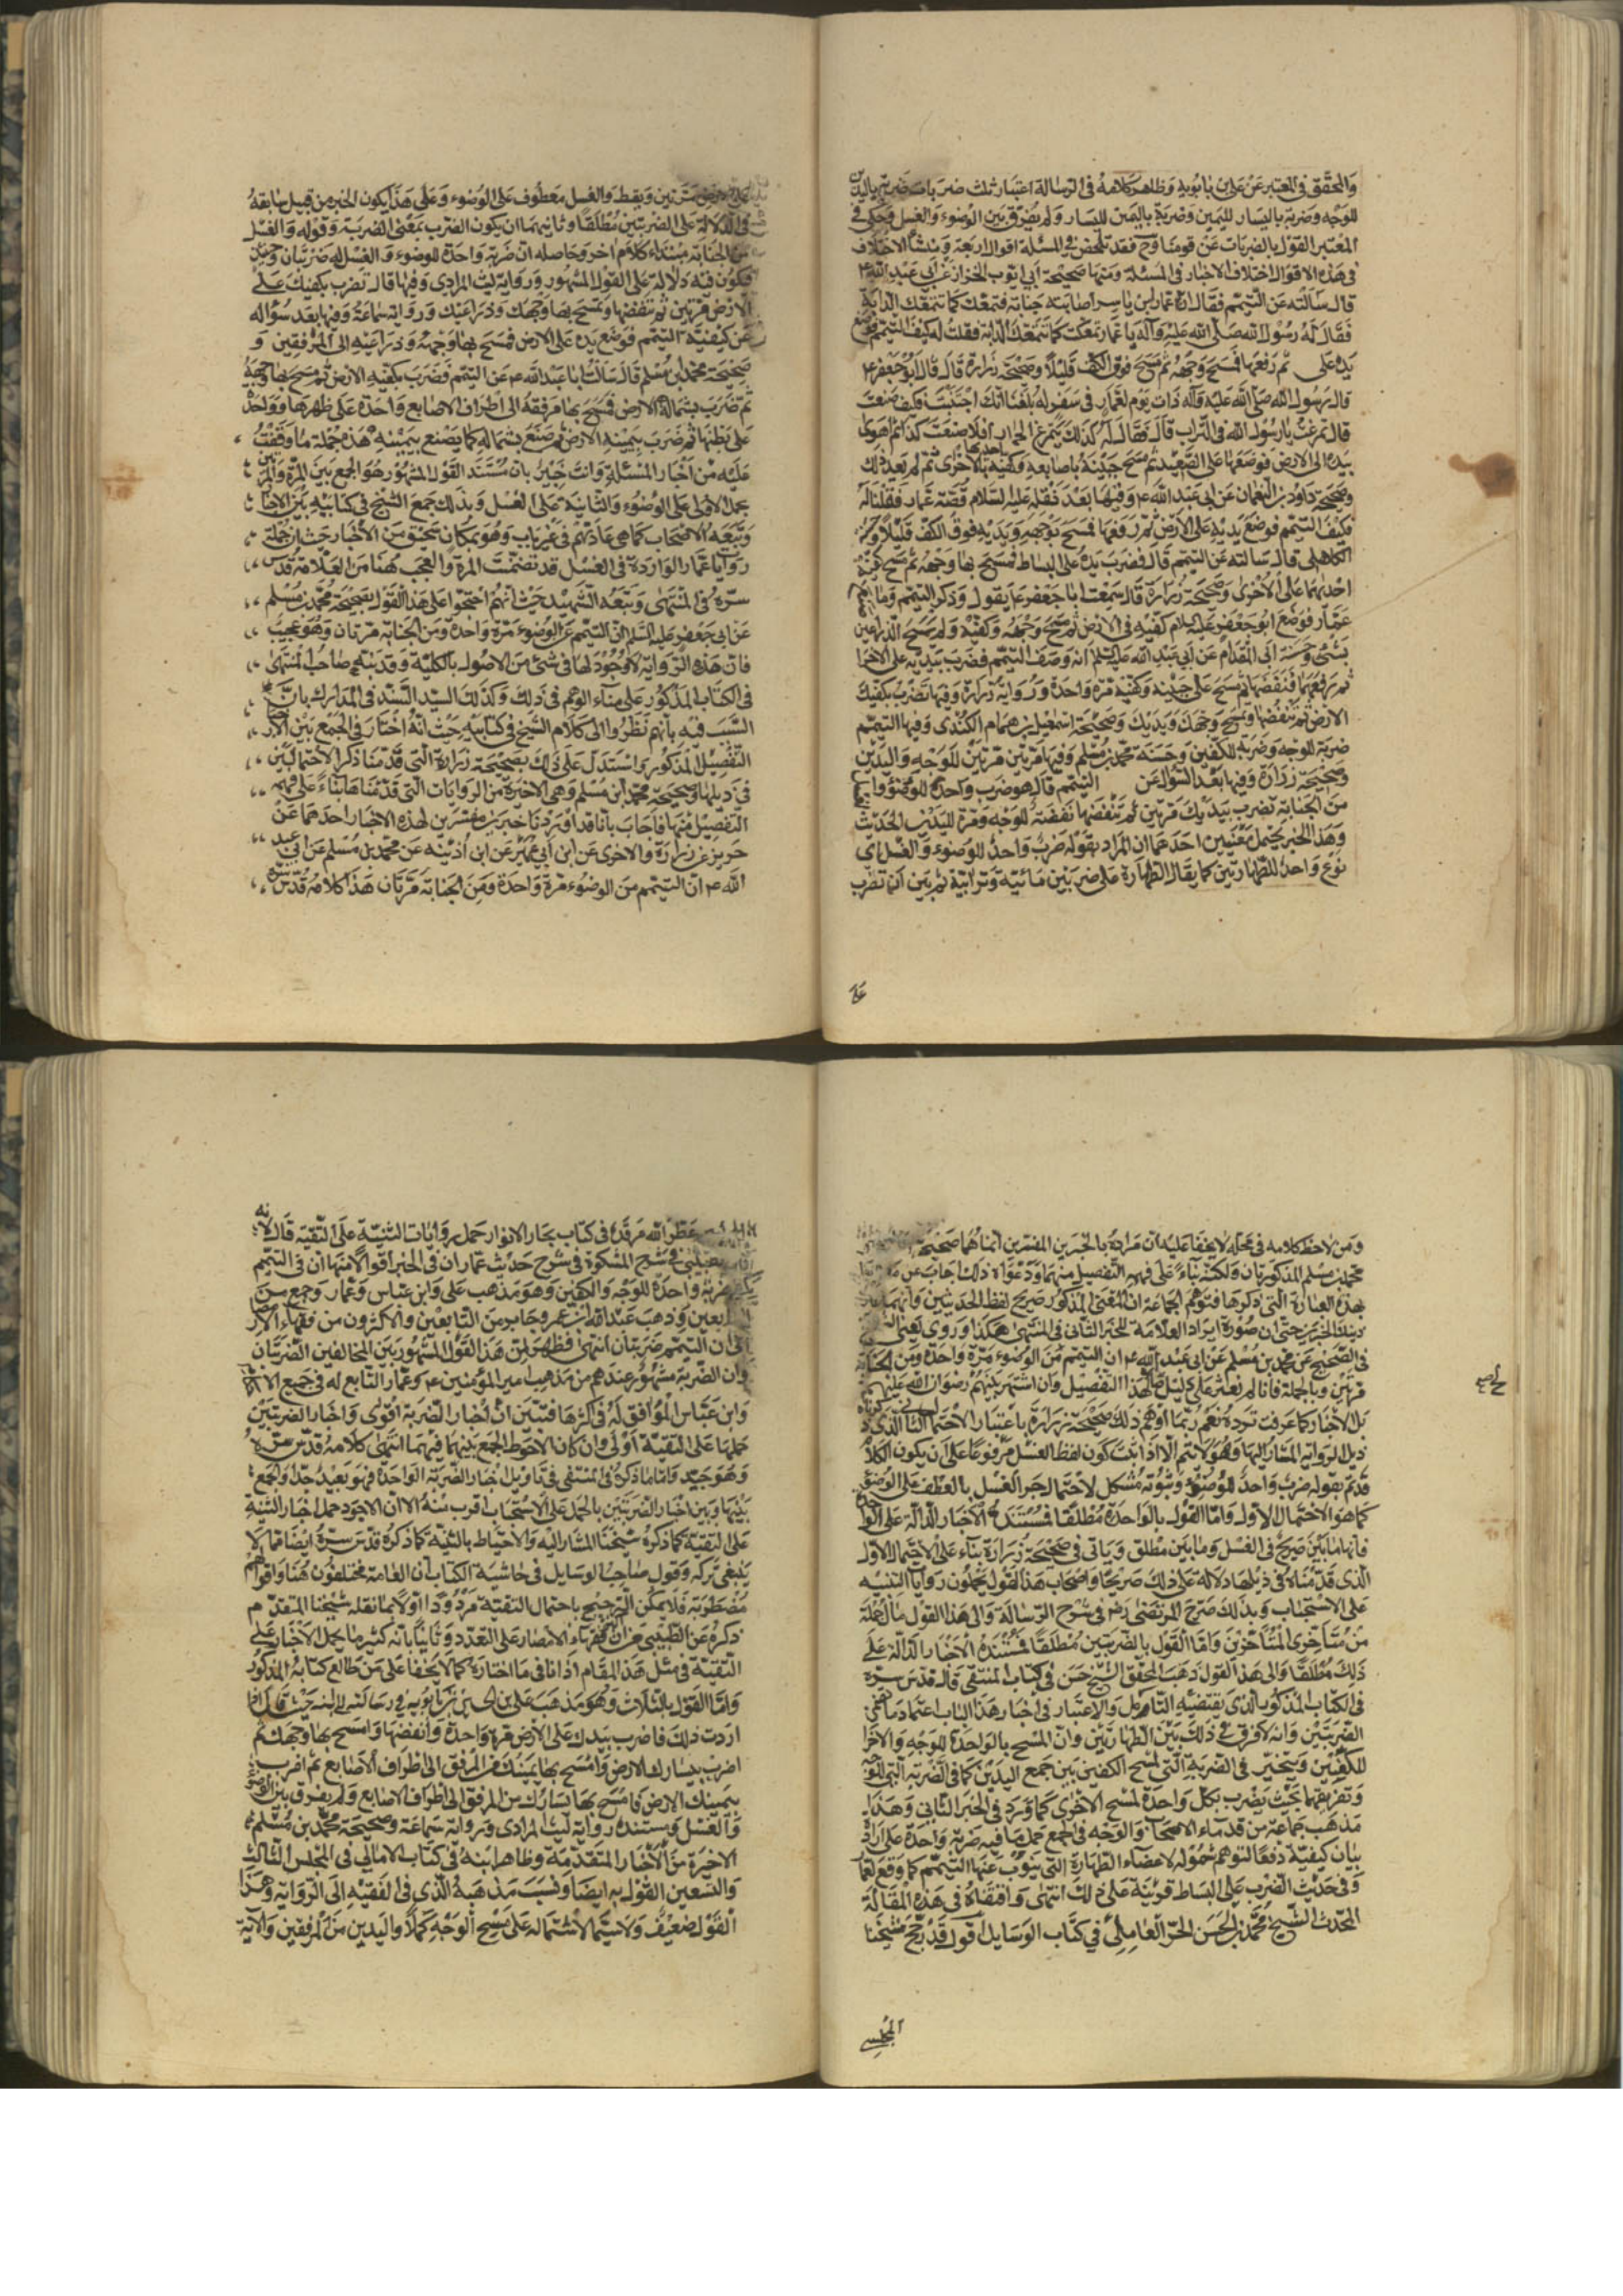 والمحقق في المعتبر عن علي بن بابويه وظاهر كلامه في الرسالة اعتبار ثلث ضربات ضربة باليدين
للوجه وضربة باليسار لليمين وضربة باليمين لليسار ولم يفرق بين الوضوء والغسل وحكى في
المعتبر القول بالضربات عن قوم منا وح فقد تلخص في المسئلة اقوال اربعة ومنشأ الاختلاف
في هذه الاقوال اختلاف الاخبار في المسئلة ومنها صحيحة ابي ايوب الخزاز عن ابي عبد الله ع
قال سالته عن التيمم فقال ان عمار ابن ياسر اصابته جنابة فتمعك كما تتمعك الدابة
فقال له رسول الله صلى الله عليه وآله يا عمار تمعكت كما تتمعك الدابة فقلت له كيف التيمم فوضع
يده على ثم رفعها فمسح وجهه ثم مسح فوق الكف قليلا وصحيحة زرارة قال قال ابو جعفر ع
قال رسول الله صلى الله عليه وآله ذات يوم لعمار في سفر له بلغنا انك اجنبت فكيف صنعت
قال تمرغت يا رسول الله في التراب قال فقال له كذلك يتمرغ الحمار افلا صنعت كذا ثم اهوى
بيده الى الارض فوضعها على الصعيد ثم مسح جبينه باصابعه وكفيه احدهما بالاخرى ثم لم يعد ذلك
وصحيحة داود بن النعمان عن ابي عبد الله ع وفيها بعد نقله عليه السلام قصة عمار فقلنا له
فكيف التيمم فوضع يديه على الارض ثم رفعها فمسح بوجهه ويديه فوق الكف قليلا و
الكاهلي قال سالته عن التيمم قال فضرب يده على البساط فمسح بها وجهه ثم مسح كفيه
احديهما على الاخرى وصحيحة زرارة قال سمعت ابا جعفر ع يقول وذكر التيمم وما
عمار فوضع ابو جعفر عليه السلام كفيه في الارض ثم مسح وجهه وكفيه ولم يمسح الذراعين
بشئ وحسنة ابي المقدام عن ابي عبد الله عليه السلم انه وصف التيمم فضرب بيديه على الارض
ثم رفعهما فنفضهما ثم مسح على جبينه وكفيه مرة واحدة ورواية زرارة وفيها تضرب بكفيك
الارض ثم تنفضها وتمسح وجهك ويديك وصحيحة اسمعيل بن همام الكندي وفيها التيمم
ضربة للوجه وضربة للكفين وحسنة محمد بن مسلم وفيها مرتين مرتين للوجه واليدين
وصحيحة زرارة وفيها بعد السؤال عن التيمم قال هو ضرب واحد للوضوء والغسل
من الجنابة تضرب بيديك مرتين ثم تنفضها نفضة للوجه ومرة لليدين الحديث
وهذا الخبر يحتمل معنيين احدهما ان المراد بقوله ضرب واحد للوضوء والغسل اي
نوع واحد للطهارتين كما يقال الطهارة على ضربين مائية وترابية ثم بين انها تضرب
على
مرتين ويقط والغسل معطوف على الوضوء وعلى هذا يكون الخبر من قبيل سابقه
في الدلالة على الضربتين مطلقا وثانيهما ان يكون الضرب بمعنى الضربة وقوله والغسل
من الجنابة مبتداء كلام اخر وحاصله ان ضربة واحدة للوضوء والغسل له ضربتان وحينئذ
فيكون فيه دلالة على القول المشهور ورواية ليث المرادي وفيها قال تضرب بكفيك على
الارض مرتين ثم تنفضها وتمسح بها وجهك وذراعيك ورواية سماعة وفيها بعد سؤاله
عن كيفية التيمم فوضع يده على الارض فمسح بها وجهه وذراعيه الى المرفقين و
صحيحة محمد بن مسلم قال سالت ابا عبد الله ع عن التيمم فضرب بكفيه الارض ثم مسح بها وجهه
ثم ضرب بشماله الارض فمسح بها مرفقه الى اطراف الاصابع واحدة على ظهرها وواحدة
على بطنها ثم ضرب بيمينه الارض ثم صنع بشماله كما يصنع بيمينه هذه جملة ما وقفت
عليه من اخبار المسئلة وانت خبير بان مستند القول المشهور هو الجمع بين المرة والمرتين
بحمل الاولى على الوضوء والثانية على الغسل وبذلك جمع الشيخ في كتابيه بين الاخبار
وتبعه الاصحاب كما هي عادتهم في غير باب وهو بمكان سحيق من الاخبار حيث ان جملة
روايات عمار الواردة في الغسل قد تضمنت المرة والعجب هنا من العلامة قدس
سره في المنتهى وتبعه الشهيد حيث انهم احتجوا على هذا القول بصحيحة محمد بن مسلم
عن ابي جعفر عليه السلام ان التيمم عن الوضوء مرة واحدة ومن الجنابة مرتان وهو عجيب
فان هذه الرواية لا وجود لها في شئ من الاصول بالكلية وقد نبه صاحب المنتقى
في الكتاب المذكور على منشاء الوهم في ذلك وكذلك السيد السند في المدارك بان
السبب فيه بانهم نظروا الى كلام الشيخ في كتابيه حيث انه اختار في الجمع بين الاخبار
التفصيل المذكور واستدل على ذلك بصحيحة زرارة التي قدمنا ذكر الاحتمالين
في ذيلها وصحيحة محمد ابن مسلم وهي الاخيرة من الروايات التي قدمناها بناء على فهمه
التفصيل منها فاجاب بانا قد اوردنا خبرين مفسرين لهذه الاخبار احدهما عن
حريز عن زرارة والاخرى عن ابن ابي عمير عن ابن اذينة عن محمد بن مسلم عن ابي عبد
الله ع ان التيمم من الوضوء مرة واحدة ومن الجنابة مرتان هذا كلامه قدس سره
ومن لاحظ كلامه في محله لا يخفا عليه ان مراده بالخبرين المفسرين انما هما صحيحة
محمد بن مسلم المذكورتان ولكنه بناء على فهمه التفصيل منهما ودعواه ذلك اجاب عن
بهذه العبارة التي ذكرها فتوهم الجماعة ان المعنى المذكور صريح لفظ الحديثين وانهما
دينك الخبرين حتى ان صورة ايراد العلامة للخبر الثاني في المنتهى هكذا وروى الشيخ
في الصحيح عن محمد بن مسلم عن ابي عبد الله ع ان التيمم من الوضوء مرة واحدة ومن الجنابة
مرتين وبالجملة فانا لم نعثر على دليل لهذا التفصيل وان اشتهر بينهم رضوان الله عليهم
بل الاخبار كما عرفت ترده نعم ربما اوهم ذلك صحيحة زرارة باعتبار الاحتمال الثاني الذي
ذيل الرواية المشار اليها وهو لا يتم الا اذا ثبت كون لفظ الغسل مرفوعا على ان يكون الكلام
قد تم بقوله ضرب واحد للوضوء وثبوته مشكل لاحتمال جر الغسل بالعطف على الوضوء
كما هو الاحتمال الاول واما القول بالواحدة مطلقا فمستنده الاخبار الدالة على الواحدة
فانها ما بين صريح في الغسل وما بين مطلق وياتي في صحيحة زرارة بناء على الاحتمال الاول
الذي قدمناه في ذيلها دلالة على ذلك صريحا واصحاب هذا القول يحملون روايات التثنية
على الاستحباب وبذلك صرح المرتضى رض في شرح الرسالة والى هذا القول مال جملة
من متاخرى المتأخرين واما القول بالضربتين مطلقا فمستنده الاخبار الدالة على
ذلك مطلقا والى هذا القول ذهب المحقق الشيخ حسن في كتاب المنتقى قال قدس سره
في الكتاب المذكور الذي يقتضيه التامل والاعتبار في اخبار هذا الباب اعتماد ما تضمن
الضربتين وانه لا فرق في ذلك بين الطهارتين وان المسح بالواحدة للوجه والاخرى
للكفين ويتخير في الضربة التي لمسح الكفين بين جمع اليدين كما في الضربة التي للوجه
وتفريقهما بحيث يضرب بكل واحدة لمسح الاخرى كما ورد في الخبر الثاني وهذا
مذهب جماعة من قدماء الاصحاب والوجه في الجمع حمل ما فيه ضربة واحدة على ارادة
بيان كيفية دفعا لتوهم شموله لاعضاء الطهارة التي ينوب عنها التيمم كما وقع لعمار
وفي حديث الضرب على البساط قرينة على ذلك انتهى واقتفاه في هذه المقالة
المحدث الشيخ محمد بن الحسن الحر العاملي في كتاب الوسايل اقول قد رجح شيخنا
المجلسي
عطر الله مرقده في كتاب بحار الانوار حمل روايات التثنية على التقية قال لانه
الطيبي في شرح المشكوة في شرح حديث عمار ان في الخبر اقوالا منها ان في التيمم
ضربة واحدة للوجه والكفين وهو مذهب علي وابن عباس وعمار وجمع من
التابعين وذهب عبد الله ابن عمر وجابر من التابعين والاكثرون من فقهاء الامصار
الى ان التيمم ضربتان انتهى فظهر من هذا القول المشهور بين المخالفين الضربتان
وان الضربة مشهور عندهم من مذهب امير المؤمنين ع وعمار التابع له في جميع الاحكام
وابن عباس الموافق له في اكثرها فتبين ان اخبار الضربة اقوى واخبار الضربتين
حملها على التقية اولى وان كان الاحوط الجمع بينها فيهما انتهى كلامه قدس سره
وهو جيد واما ما ذكره في المنتقى في تاويل اخبار الضربة الواحدة فهو بعيد جدا والجمع
بينها وبين اخبار الضربتين بالحمل على الاستحباب اقرب منه الا ان الاجود حمل اخبار التثنية
على التقية كما ذكره شيخنا المشار اليه والاحتياط بالتثنية كما ذكره قدس سره ايضا مما لا
ينبغي تركه وقول صاحب الوسايل في حاشية الكتاب ان العامة مختلفون هنا واقوالهم
مضطربة فلا يمكن الترجيح باحتمال التقية مردود اولا بما نقله شيخنا المتقدم
ذكره عن الطيبي من ان فقهاء الامصار على التعدد وثانيا بانه كثير ما يحمل الاخبار على
التقية في مثل هذا المقام اذا نافى ما اختاره كما لا يخفا على من طالع كتابه المذكور
واما القول بالثلاث وهو مذهب علي بن الحسين بن بابويه في رسالته الى ابنه حيث قال اذا
اردت ذلك فاضرب بيديك على الارض مرة واحدة وانفضها وامسح بها وجهك ثم
اضرب بيسارك الارض وامسح بها يمينك من المرفق الى اطراف الاصابع ثم اضرب
بيمينك الارض فامسح بها يسارك من المرفق الى اطراف الاصابع ولم يفرق بين الوضوء
والغسل ومستنده رواية ليث المرادي ورواية سماعة وصحيحة محمد بن مسلم
الاخيرة من الاخبار المتقدمة وظاهر ابنه في كتاب الامالي في المجلس الثالث
والتسعين القول به ايضا ونسب مذهبه الذي في الفقيه الى الرواية وهذا
القول ضعيف ولا سيما لاشتماله على مسح الوجه كملا واليدين من المرفقين والآية